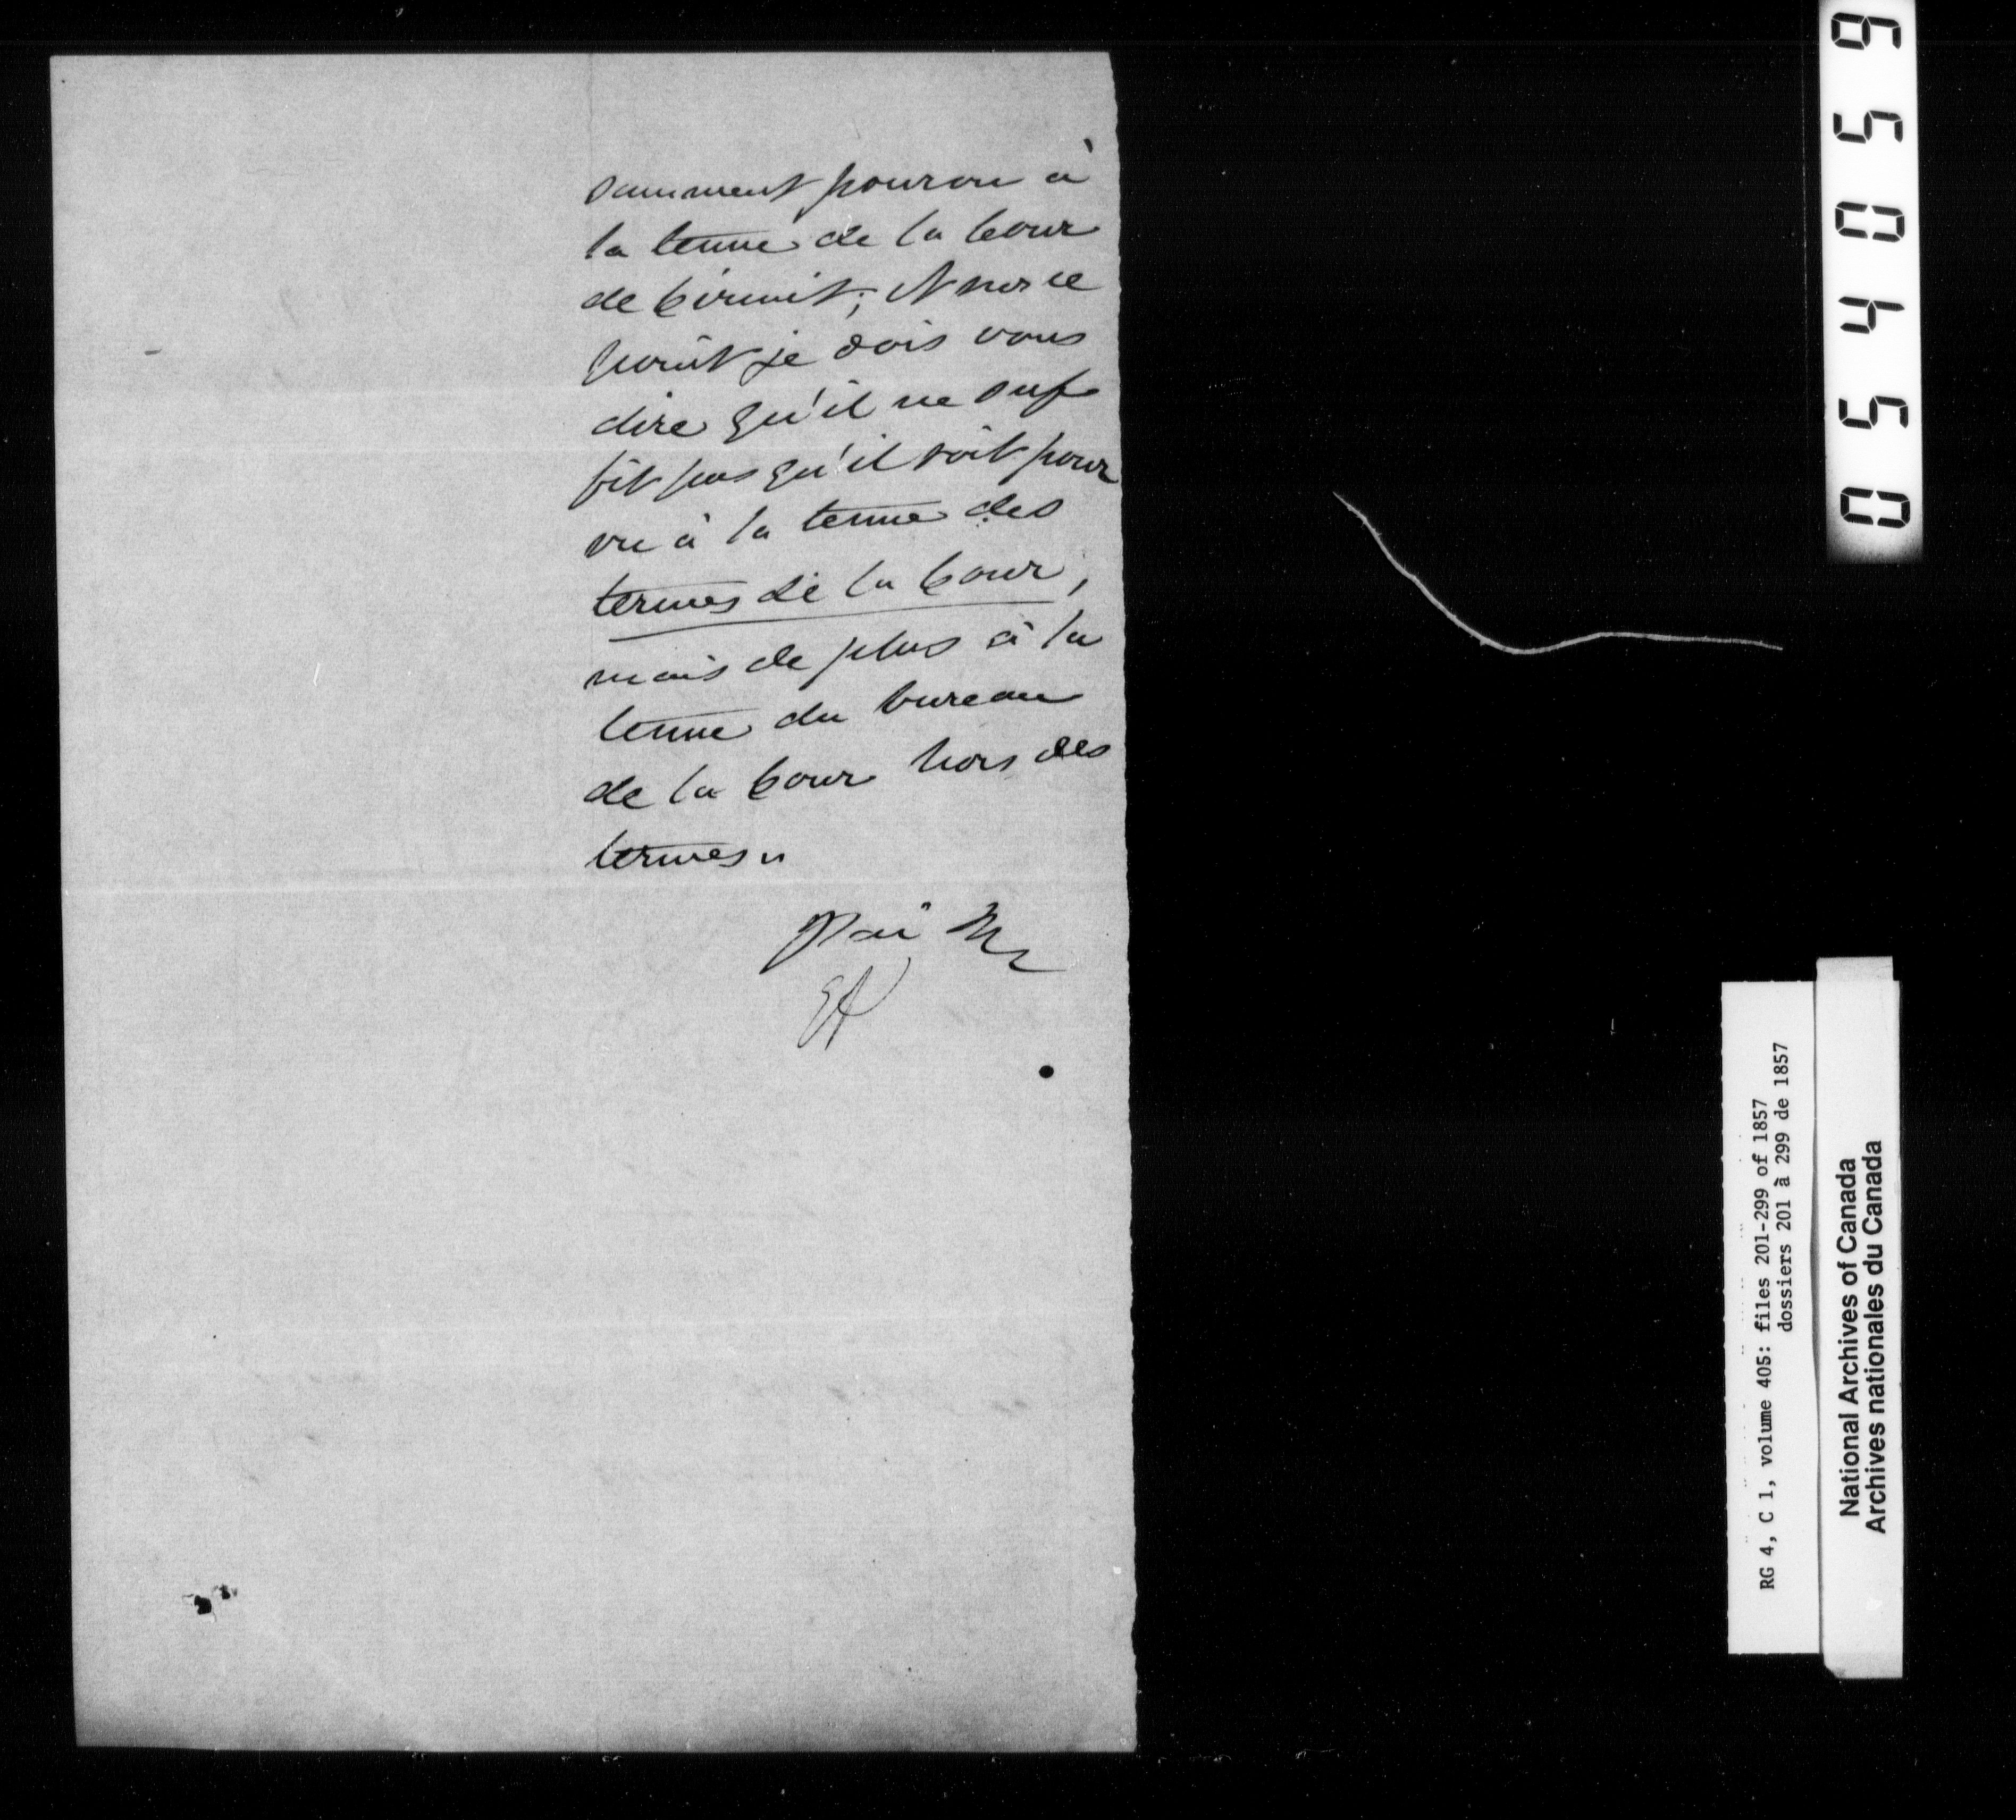 samment pourvu à
la tenue de la Cour
de Circuit; et sur ce
point je dois vous
dire qu'il ne suf
fit pas qu'il soit pour
vu à la tenue des
termes de la Cour,
mais de plus à la
tenue du bureau
de la Cour hors des
termes"
J'ai
054059
RG 4, C 1, volume 405: files 201-299 of 1857
dossiers 201 à 299 de 1857
National Archives of Canada
Archives nationales du Canada